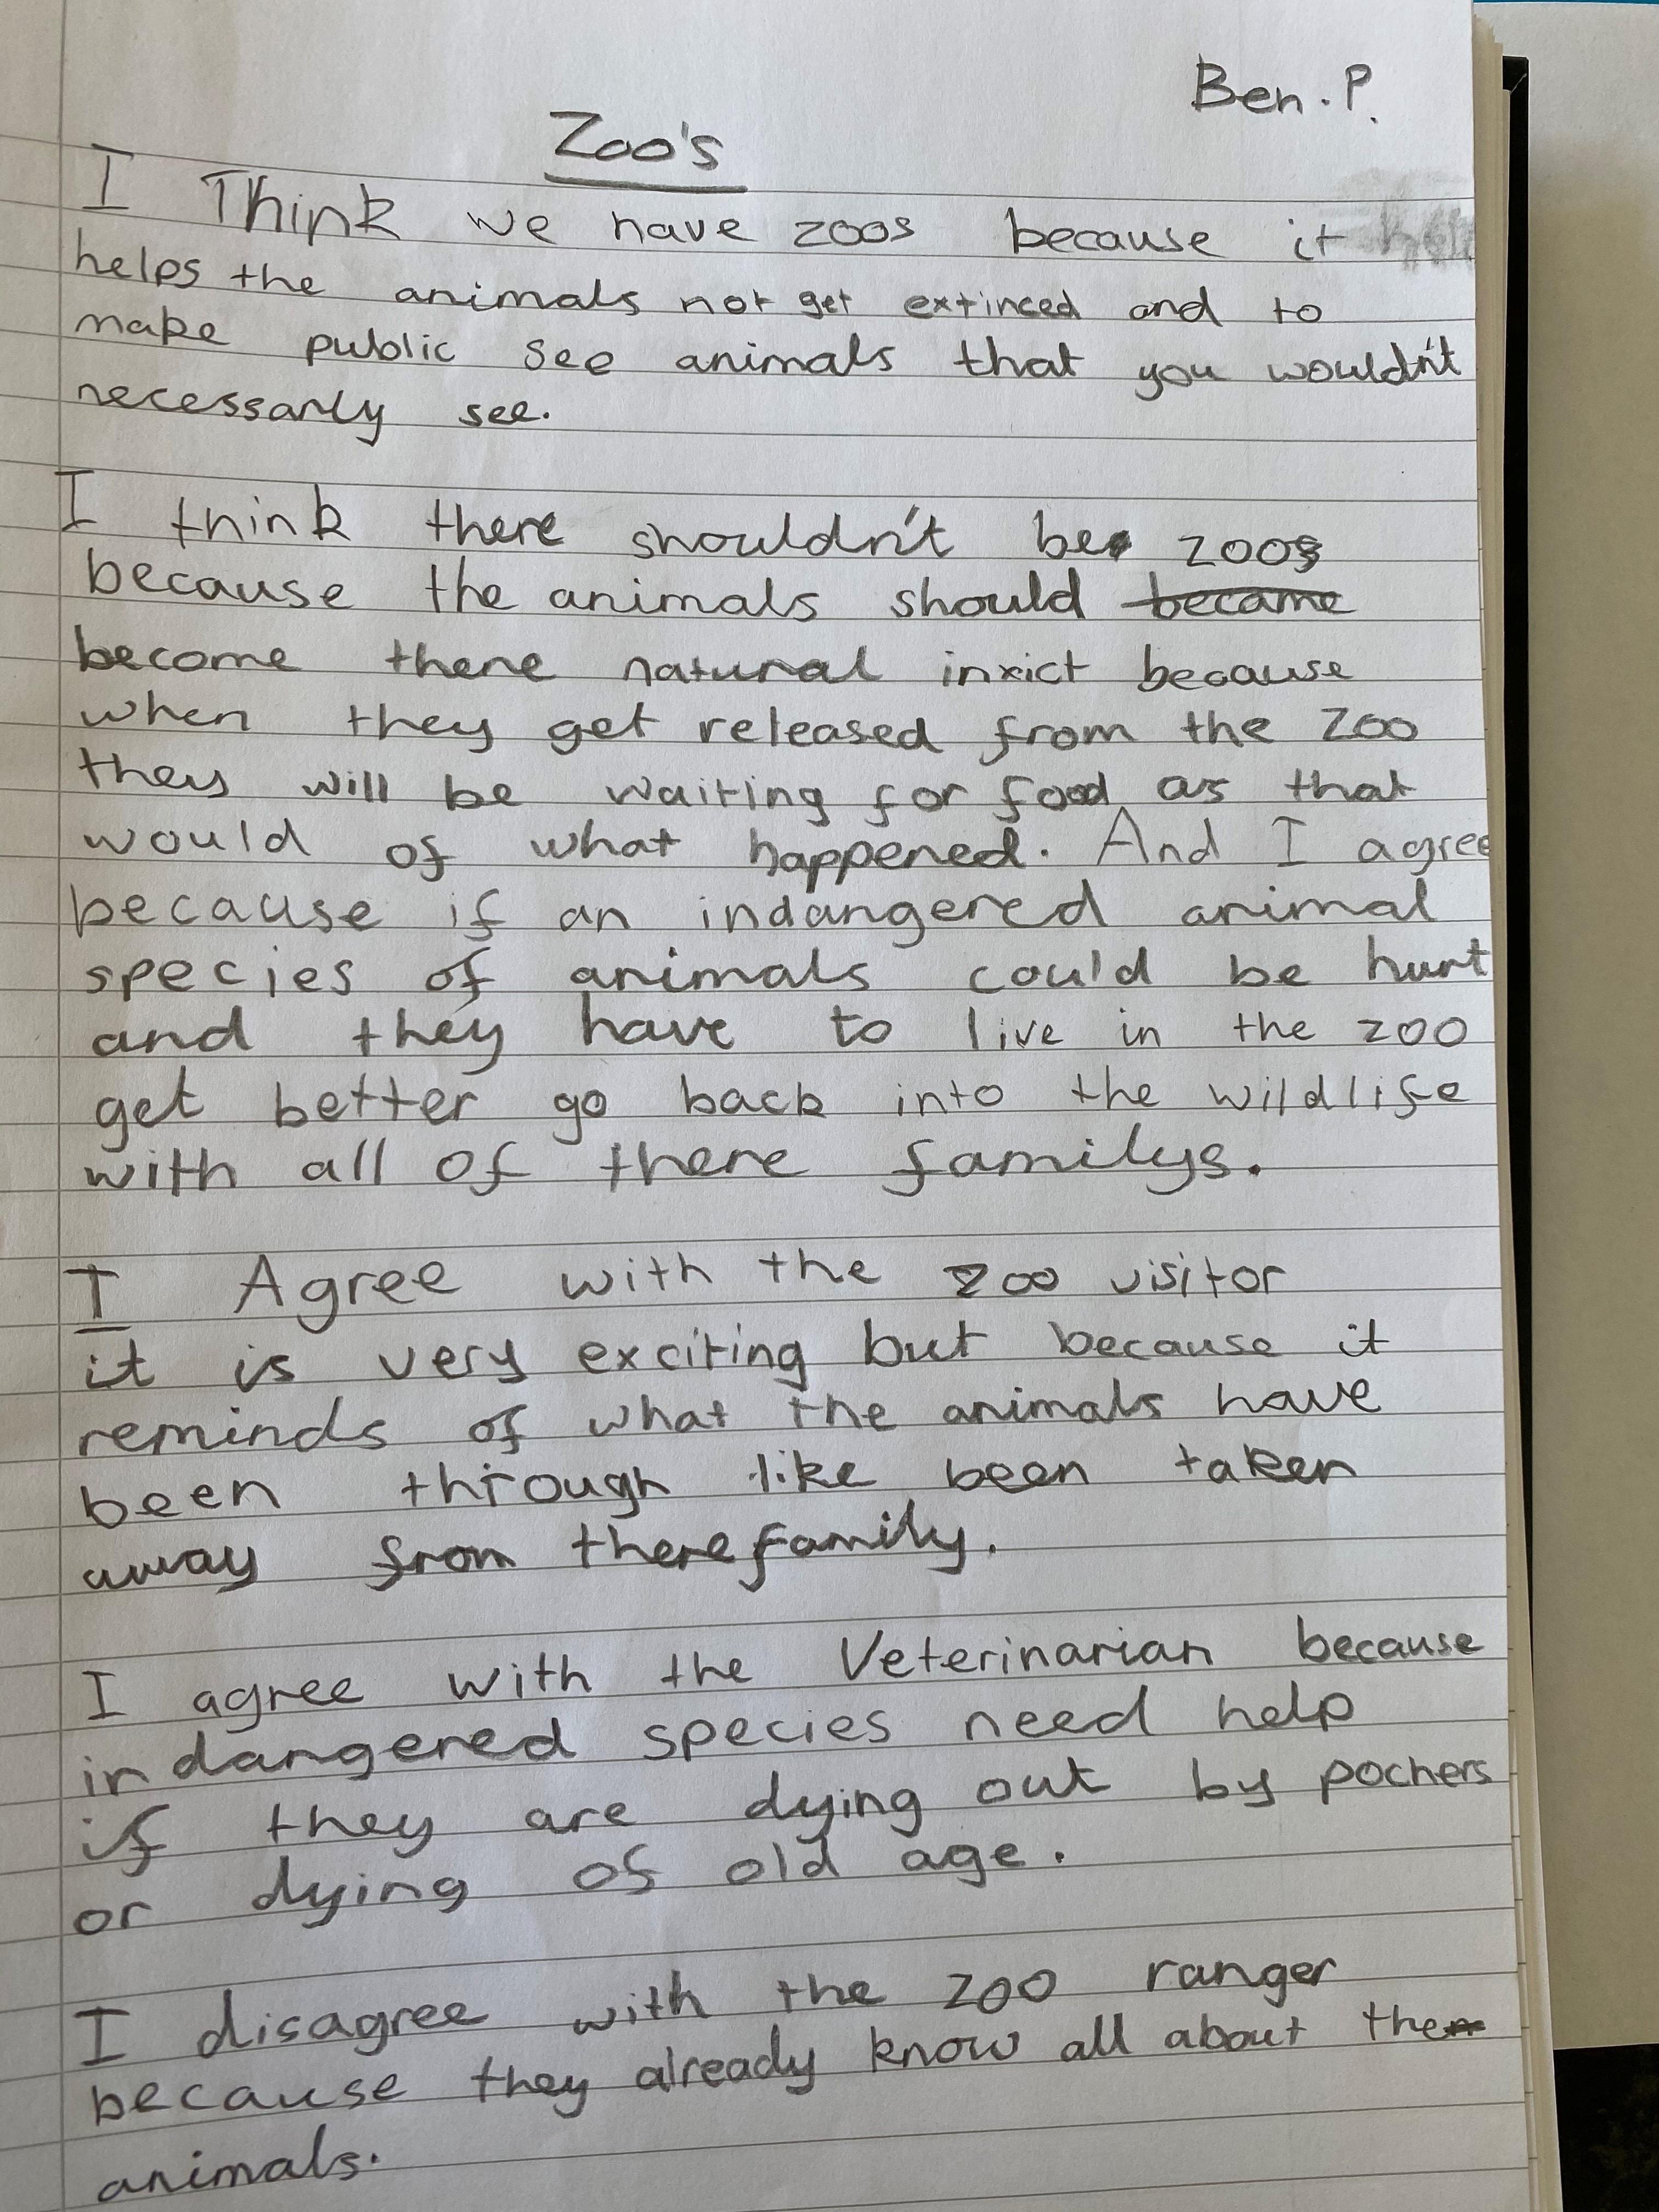 Ben. P.
Zoo's
I Think we have zoos because it
helps the animals not get extinced and to
make public see animals that you wouldn't
necessarly see.
I think there shouldn't be zoos
because the animals should became
become there natural inxict because
when they get released from the zoo
they will be waiting for food as that
would of what happened. And I agree
because if an indangered animal
species of animals could be hurt
and they have to live in the zoo
get better go back into the wildlife
with all of there familys.
I Agree with the zoo visitor
it is very exciting but because it
reminds of what the animals have
been through like been taken
away from there family.
I agree with the Veterinarian because
indangered species need help
if they are dying out by pochers
or dying of old age.
I disagree with the zoo ranger
because they already know all about the
animals.